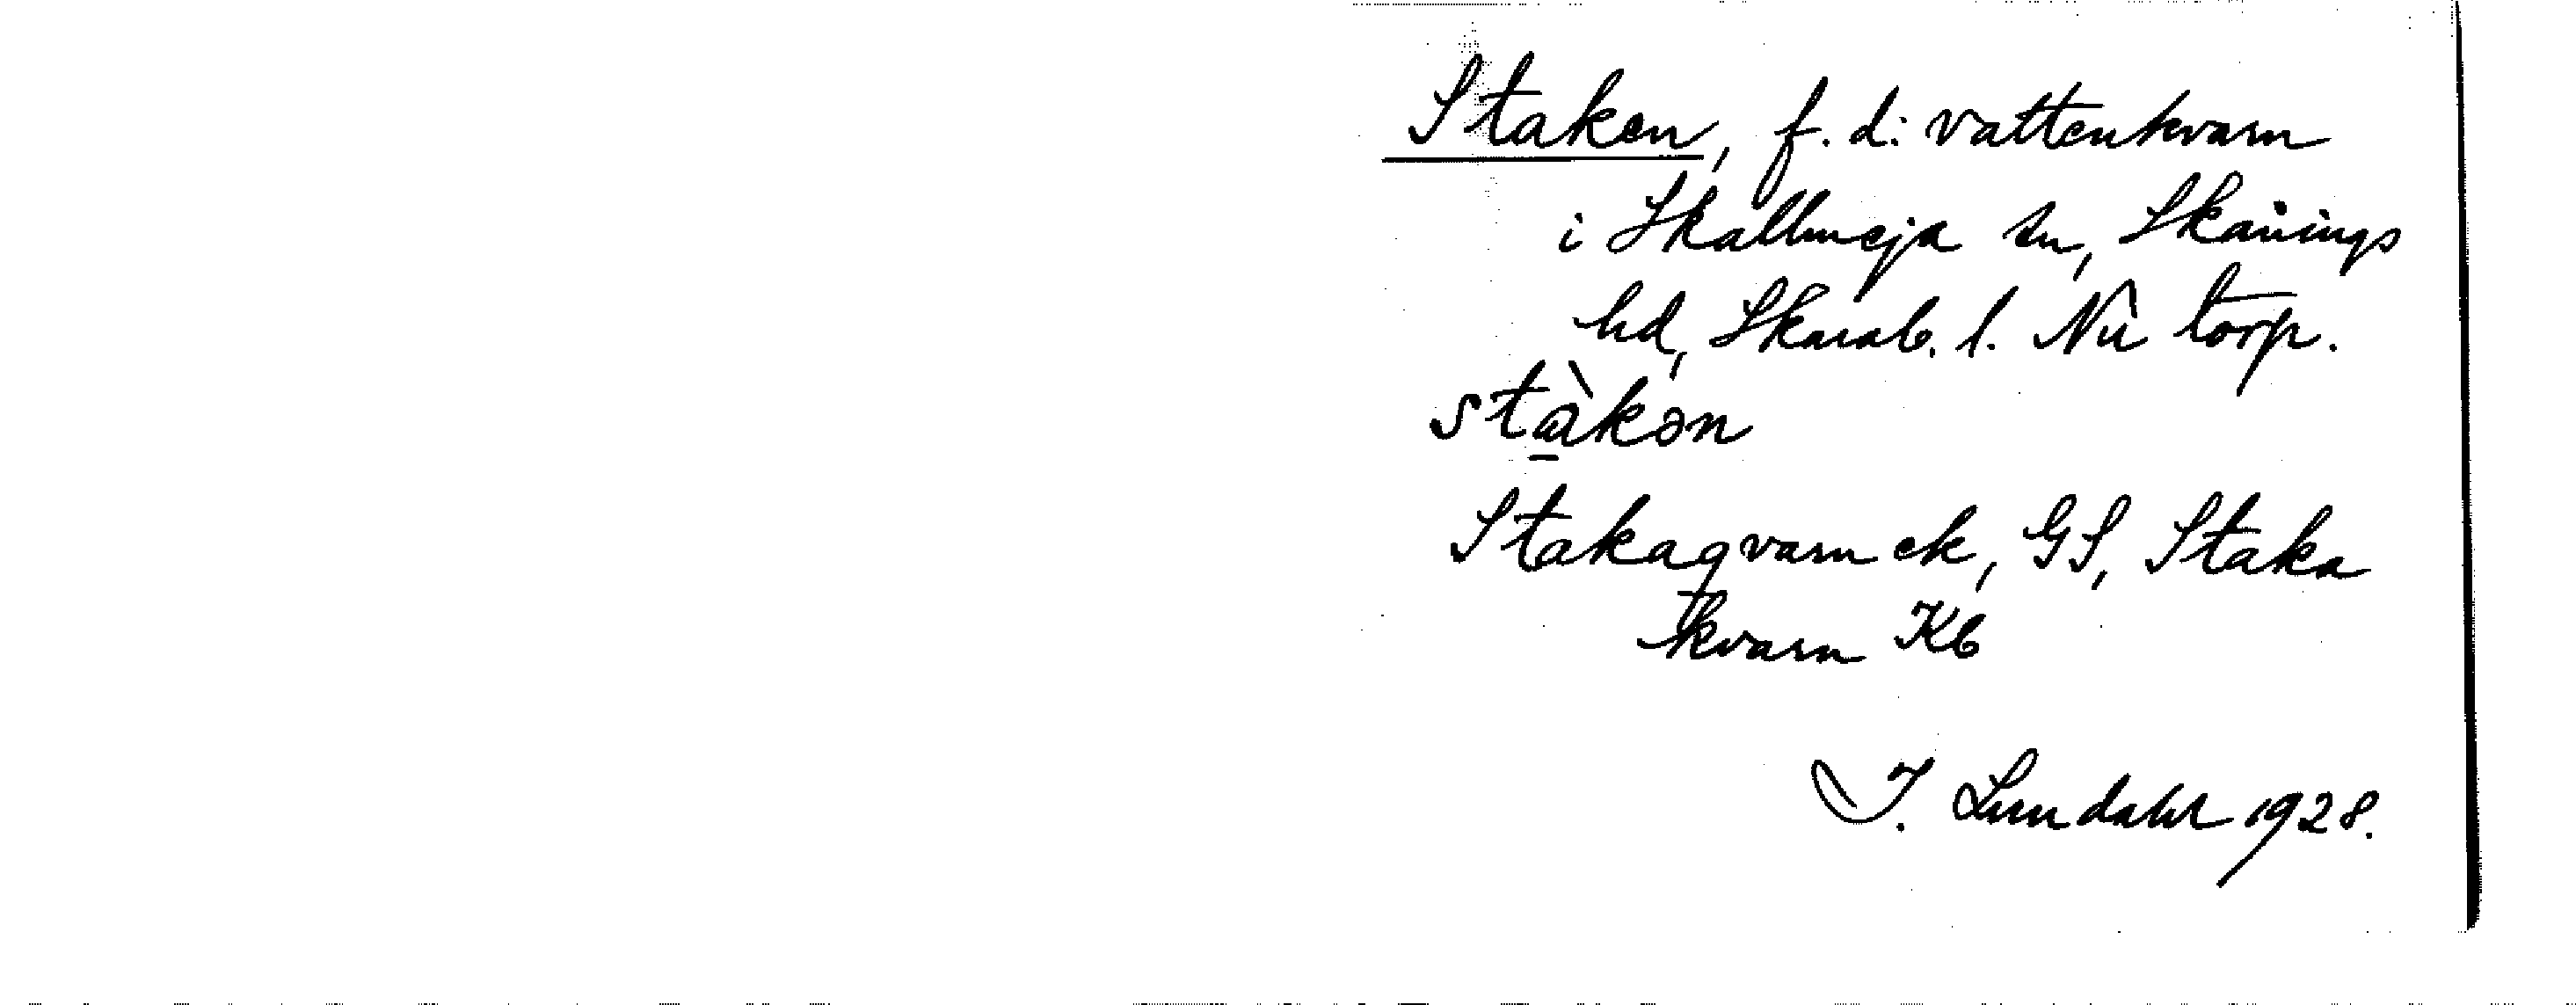 Staken, f. d. vattenkvarn
i Skallmeja sn, Skånings
hd, Skarab. l. Nu torp.
stа̀kən
Stakaqvarn ek, GS, Staka
kvarn Kb
I. Lundahl 1928.